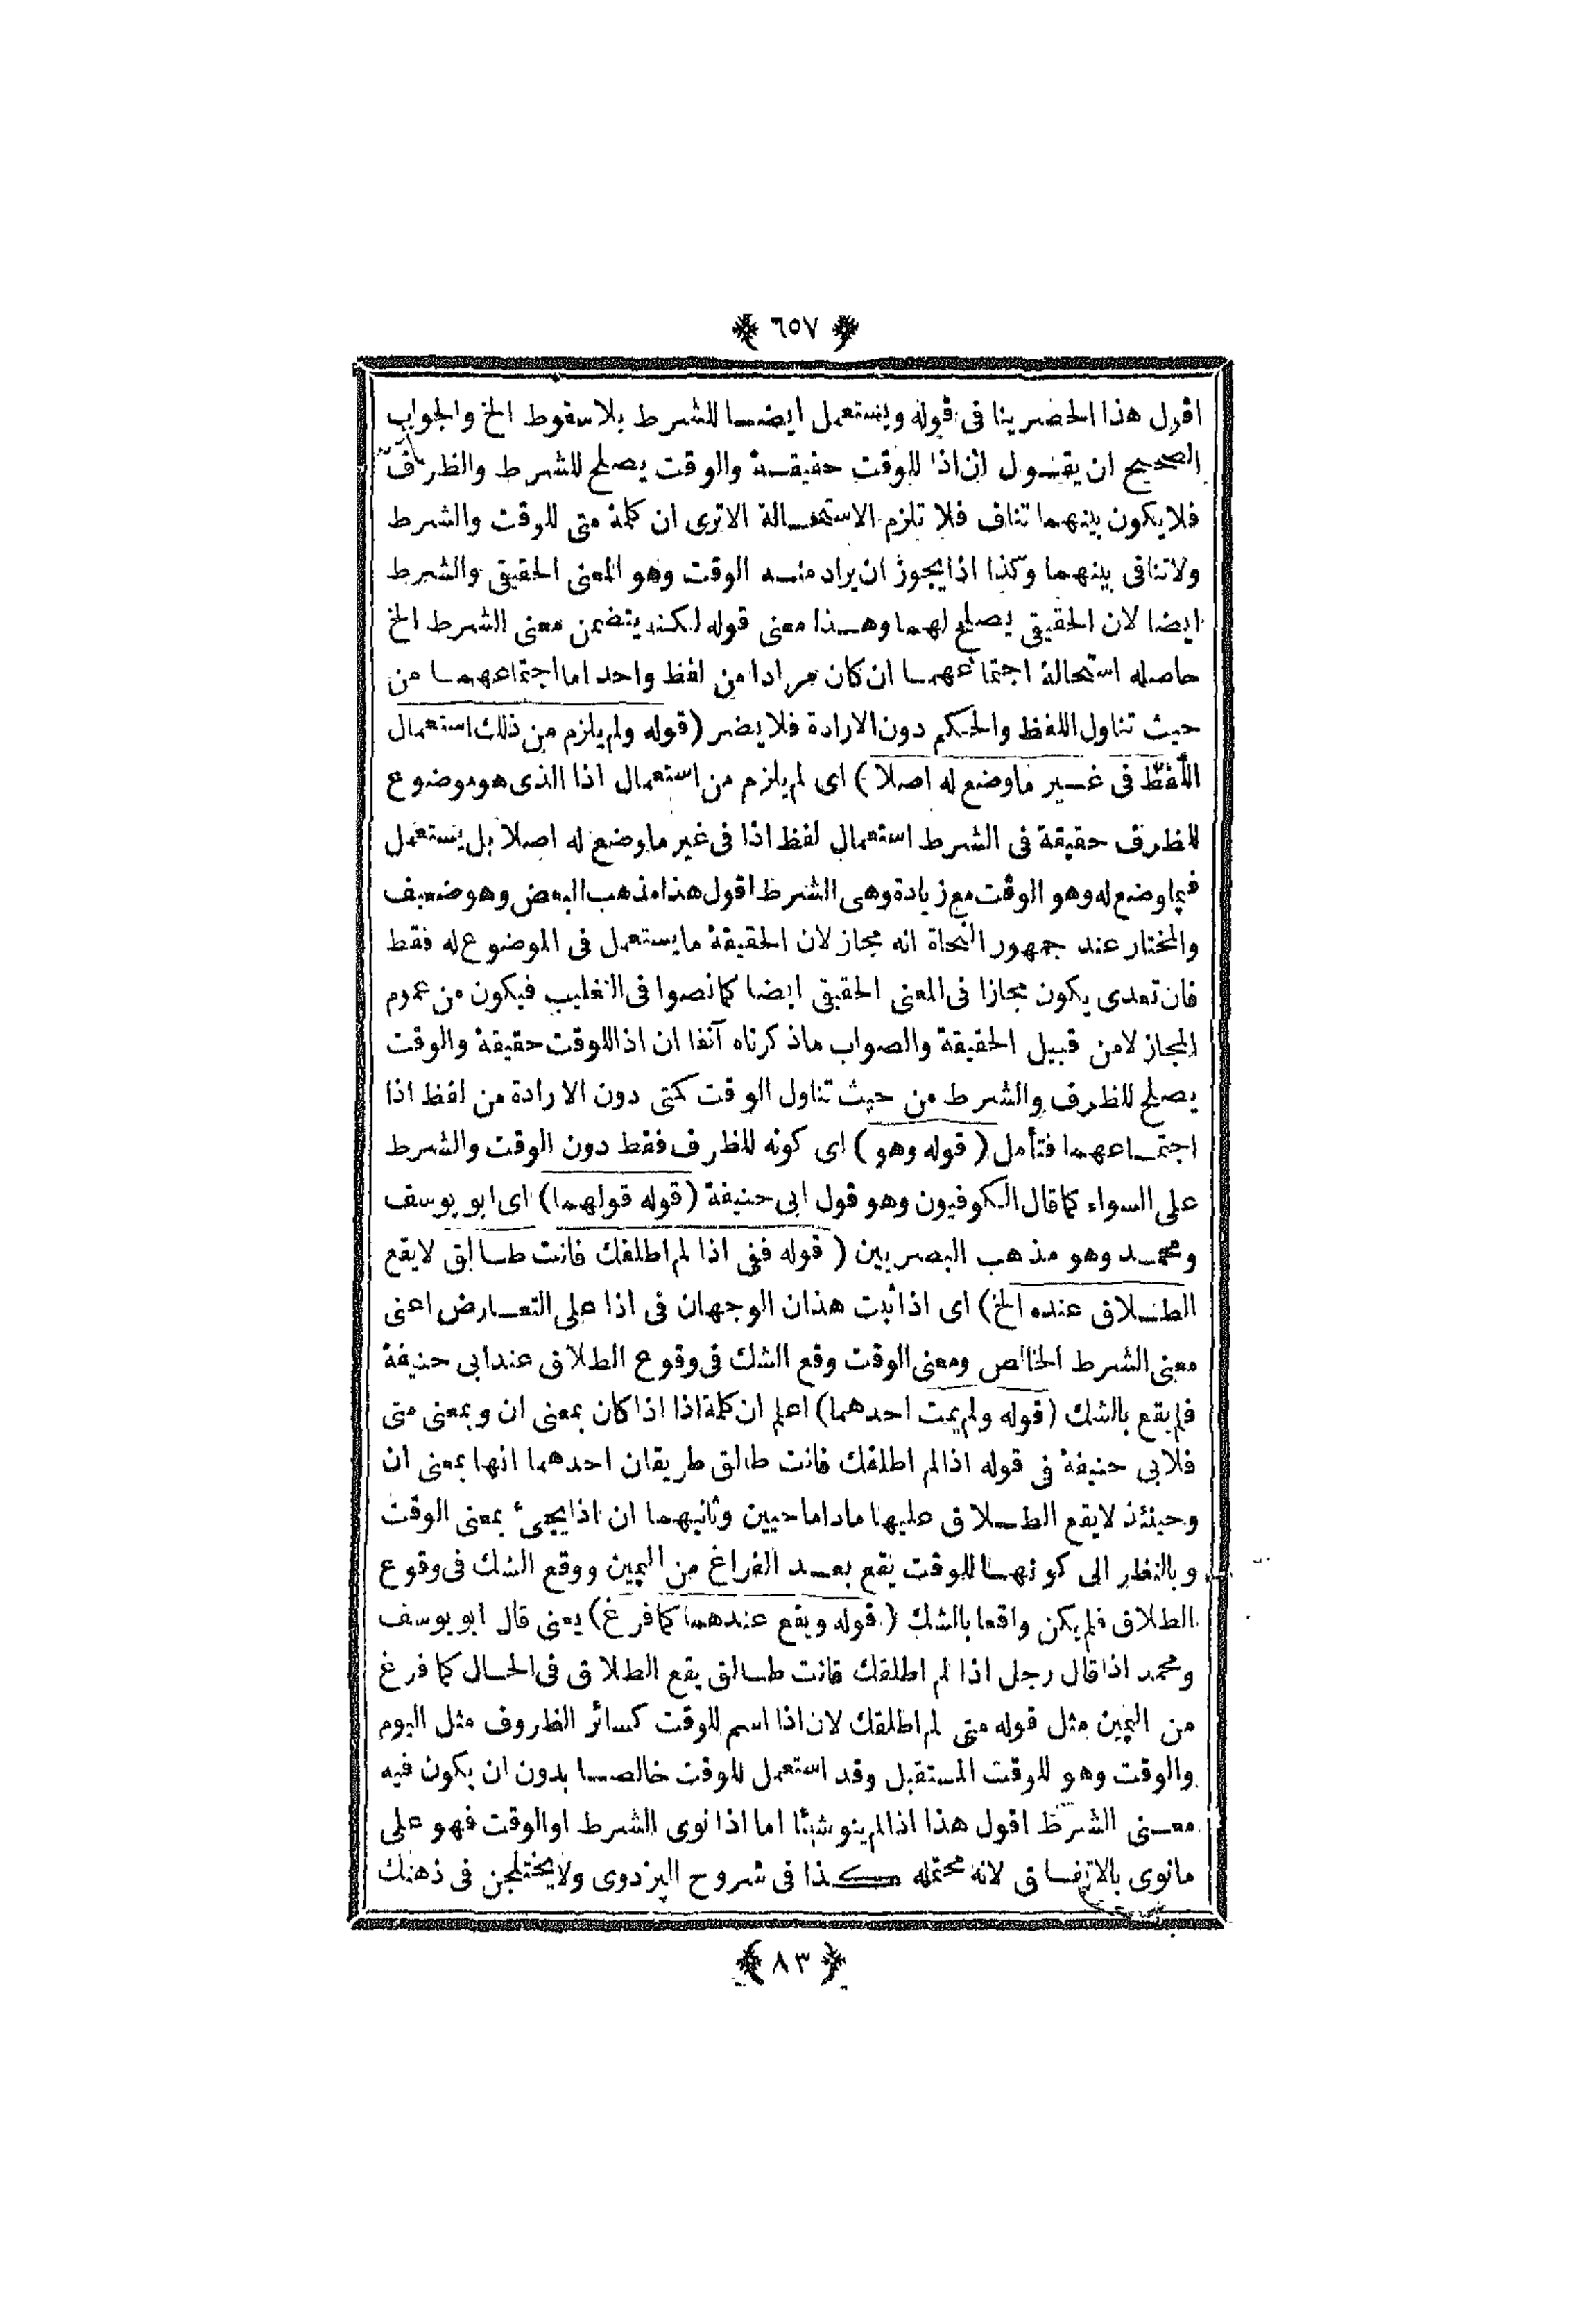 ﴿ ٦٥٧ ﴾
اقول هذا الحصر ينافى قوله ويستعمل ايضا للشرط بلا سقوط الخ والجواب
الصحيح ان يقول ان اذا للوقت حقيقة والوقت يصلح للشرط والظرف
فلا يكون بينهما تناف فلا تلزم الاستحالة الا ترى ان كلمة متى للوقت والشرط
ولا تنافى بينهما وكذا اذا يجوز ان يراد منه الوقت وهو المعنى الحقيقى والشرط
ايضا لان الحقيقى يصلح لهما وهذا معنى قوله لكنه يتضمن معنى الشرط الخ
حاصله استحالة اجتماعهما ان كان مرادا من لفظ واحد اما اجتماعهما من
حيث تناول اللفظ والحكم دون الارادة فلا يضر (قوله ولم يلزم من ذلك استعمال
اللفظ فى غير ما وضع له اصلا) اى لم يلزم من استعمال اذا الذى هو موضوع
للظرف حقيقة فى الشرط استعمال لفظ اذا فى غير ما وضع له اصلا بل يستعمل
فيما وضع له وهو الوقت مع زيادة وهى الشرط اقول هذا مذهب البعض وهو ضعيف
والمختار عند جمهور النحاة انه مجاز لان الحقيقة ما يستعمل فى الموضوع له فقط
فان تعدى يكون مجازا فى المعنى الحقيقى ايضا كما نصوا فى التغليب فيكون من عموم
المجاز لا من قبيل الحقيقة والصواب ما ذكرناه آنفا ان اذا للوقت حقيقة والوقت
يصلح للظرف والشرط من حيث تناول الوقت كمتى دون الارادة من لفظ اذا
اجتماعهما فتأمل (قوله وهو) اى كونه للظرف فقط دون الوقت والشرط
على السواء كما قال الكوفيون وهو قول ابى حنيفة (قوله قولهما) اى ابو يوسف
ومحمد وهو مذهب البصريين (قوله ففى اذا لم اطلقك فانت طالق لا يقع
الطلاق عنده الخ) اى اذا ثبت هذان الوجهان فى اذا على التعارض اعنى
معنى الشرط الخالص ومعنى الوقت وقع الشك فى وقوع الطلاق عند ابى حنيفة
فلم يقع بالشك (قوله ولم يمت احدهما) اعلم ان كلمة اذا اذا كان بمعنى ان وبمعنى متى
فلابى حنيفة فى قوله اذا لم اطلقك فانت طالق طريقان احدهما انها بمعنى ان
وحينئذ لا يقع الطلاق عليها ما داما حيين وثانيهما ان اذا يجىء بمعنى الوقت
وبالنظر الى كونها للوقت يقع بعد الفراغ من اليمين ووقع الشك فى وقوع
الطلاق فلم يكن واقعا بالشك (قوله ويقع عندهما كما فرغ) يعنى قال ابو يوسف
ومحمد اذا قال رجل اذا لم اطلقك فانت طالق يقع الطلاق فى الحال كما فرغ
من اليمين مثل قوله متى لم اطلقك لان اذا اسم للوقت كسائر الظروف مثل اليوم
والوقت وهو للوقت المستقبل وقد استعمل للوقت خالصا بدون ان يكون فيه
معنى الشرط اقول هذا اذا لم ينو شيئا اما اذا نوى الشرط او الوقت فهو على
ما نوى بالاتفاق لانه محتمله كذا فى شروح البزدوى ولا يختلجن فى ذهنك
﴿ ٨٣ ﴾